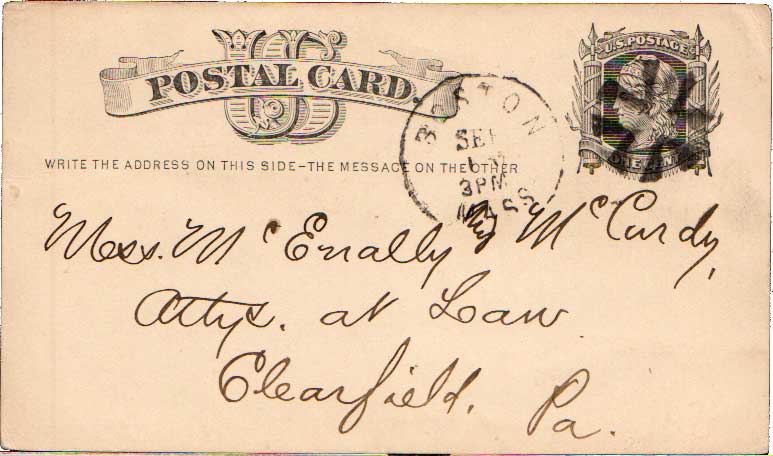 US
POSTAL CARD.
U.S. POSTAGE
ONE CENT
WRITE THE ADDRESS ON THIS SIDE–THE MESSAGE ON THE OTHER
BOSTON
SEP
3PM
MASS
Mess. McEnally & McCurdy,
Attys. at Law
Clearfield, Pa.